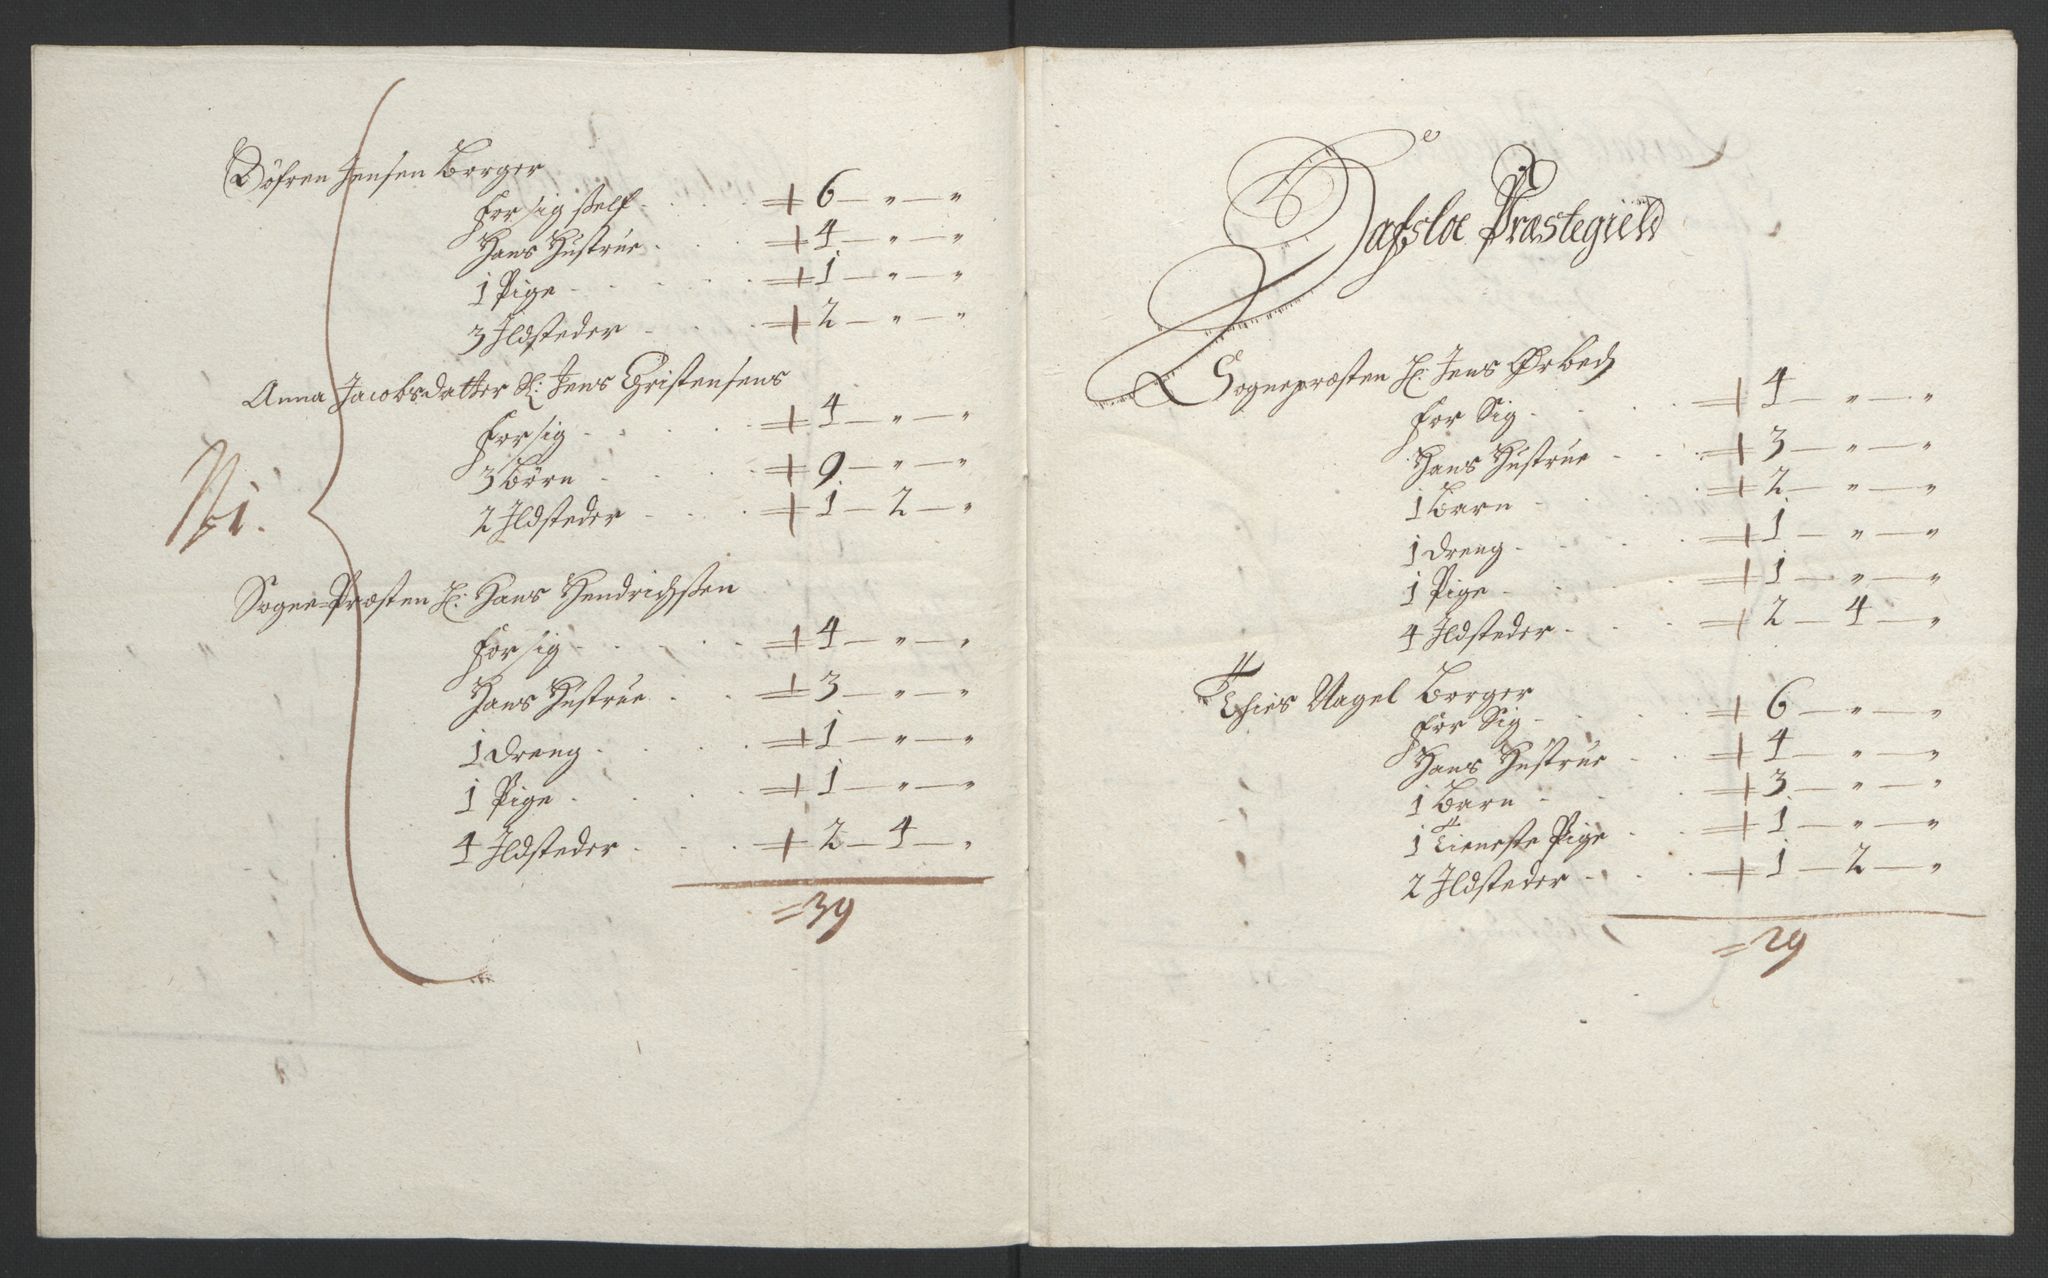 Söfren Jensen Borger
for sig self - 6 - " - "
Hans Hustrue - 4 - " - "
1 Pige - 1 - " - "
3 Jldsteder - 2 - " - "
Anna Jacobsdatter Sl: Jens Christensens
for sig - 4 - " - "
3 Börn - 9 - " - "
2 Jldsteder - 1 - 2 - "
Sogne-Præsten H: Hans Hendrichssen
for sig - 4 - " - "
Hans Hustrue - 3 - " - "
1 dreng - 1 - " - "
1 Pige - 1 - " - "
4 Jldsteder - 2 - 4 - "
= 39
Dafsloe Præstegield
Sognepræsten H: Jens Ørbech
for Sig - 4 - " - "
Hans Hustrue - 3 - " - "
1 Barn - 2 - " - "
1 dreng - 1 - " - "
1 Pige - 1 - " - "
4 Jldsteder - 2 - 4 - "
Thies Nagel Borger
for Sig - 6 - " - "
Hans Hustrue - 4 - " - "
1 Barn - 3 - " - "
1 Tieneste Pige - 1 - " - "
2 Jldsteder - 1 - 2 - "
= 29